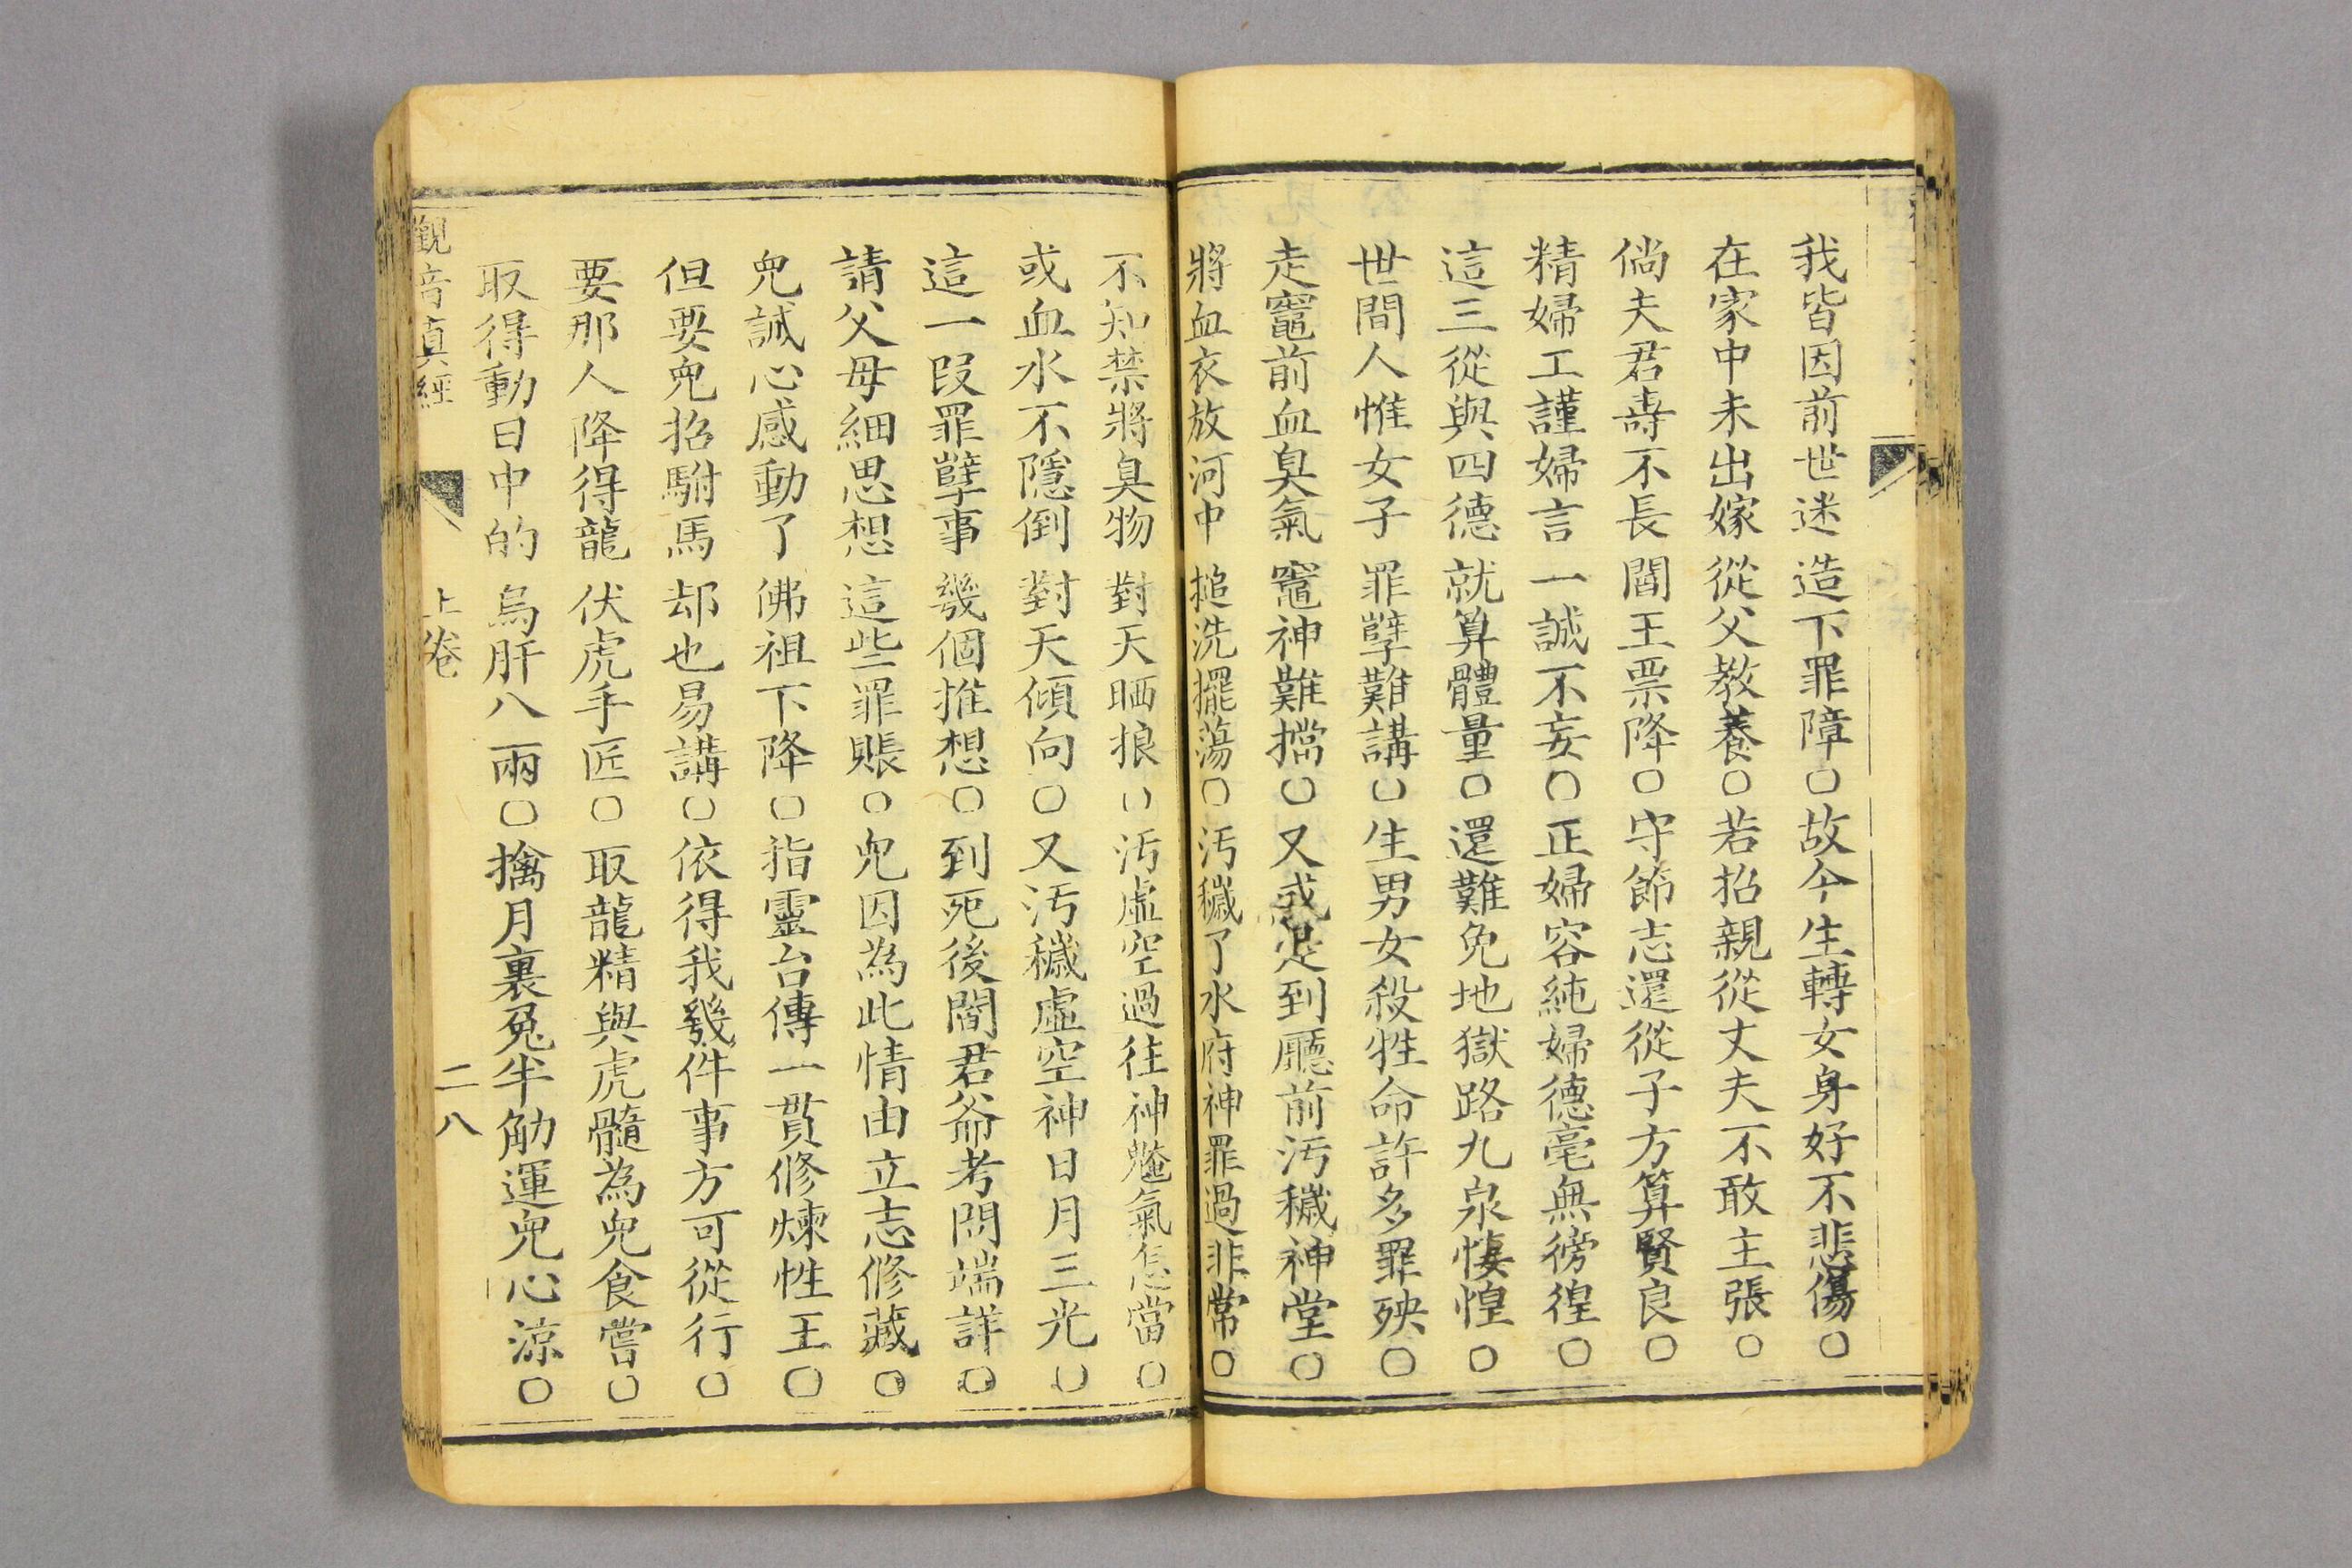 我皆因前世迷造下罪障○故今生轉女身好不悲傷○
在家中未出嫁從父教養○若招親從丈夫不敢主張○
倘夫君壽不長閻王票降○守節志還從子方算賢良○
精婦工謹婦言一誠不妄○正婦容純婦德毫無徬徨○
這三從與四德就算體量○還難免地獄路九泉悽惶○
世間人惟女子罪孽難講○生男女殺牲命許多罪殃○
走竈前血臭氣竈神難擋○又或是到廳前汚穢神堂○
將血衣放河中搥洗擺蕩○汚穢了水府神罪過非常○
不知禁將臭物對天晒㫰○汚虛空過往神魑氣怎當○
或血水不隱倒對天傾向○又汚穢虛空神日月三光○
這一段罪孽事幾個推想○到死後閻君爺考問端詳○
請父母細思想這些罪賬○兒因為此情由立志修藏○
兒誠心感動了佛祖下降○指靈台傳一貫修煉性王○
但要兒招駙馬却也易講○依得我幾件事方可從行○
要那人降得龍伏虎手匠○取龍精與虎髓為兒食嘗○
取得動日中的烏肝八兩○擒月裏兔半觔運兒心涼○
觀音真經 上卷 二八